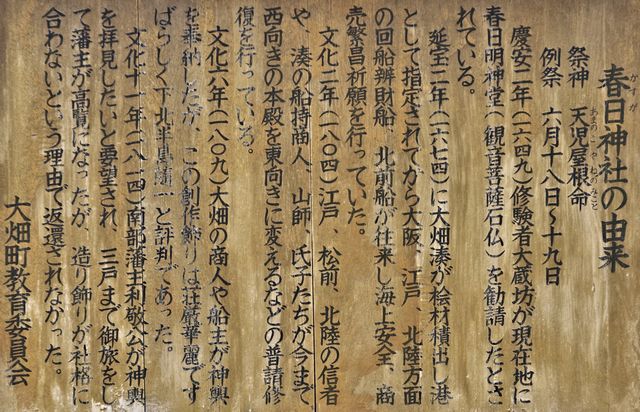 春日神社の由来
祭神　天児屋根命
あまのこやねのみこと
例祭　六月十八日～十九日
慶安二年(一六四九)修験者大蔵坊が現在地に
春日明神堂(観音菩薩石仏)を勧請したとさ
れている。
延宝二年(一六七四)に大畑湊が桧材積出し港
として指定されてから大阪、江戸、北陸方面
の回船辨財船、北前船が往来し海上安全、商
売繁昌祈願を行っていた。
文化二年(一八〇四)江戸、松前、北陸の信者
や、湊の船持商人、山師、氏子たちが今まで
西向きの本殿を東向きに変えるなどの普請修
復を行っている。
文化六年(一八〇九)大畑の商人や船主が神輿
を奉納したが、この創作飾りは荘厳華麗です
ばらしく下北半島随一と評判であった。
文化十一年(一八一四)南部藩主利敬公が神輿
を拝見したいと要望され、三戸まで御旅をし
て藩主が高覧になったが、造り飾りが社格に
合わないという理由で返還されなかった。
大畑町教育委員会